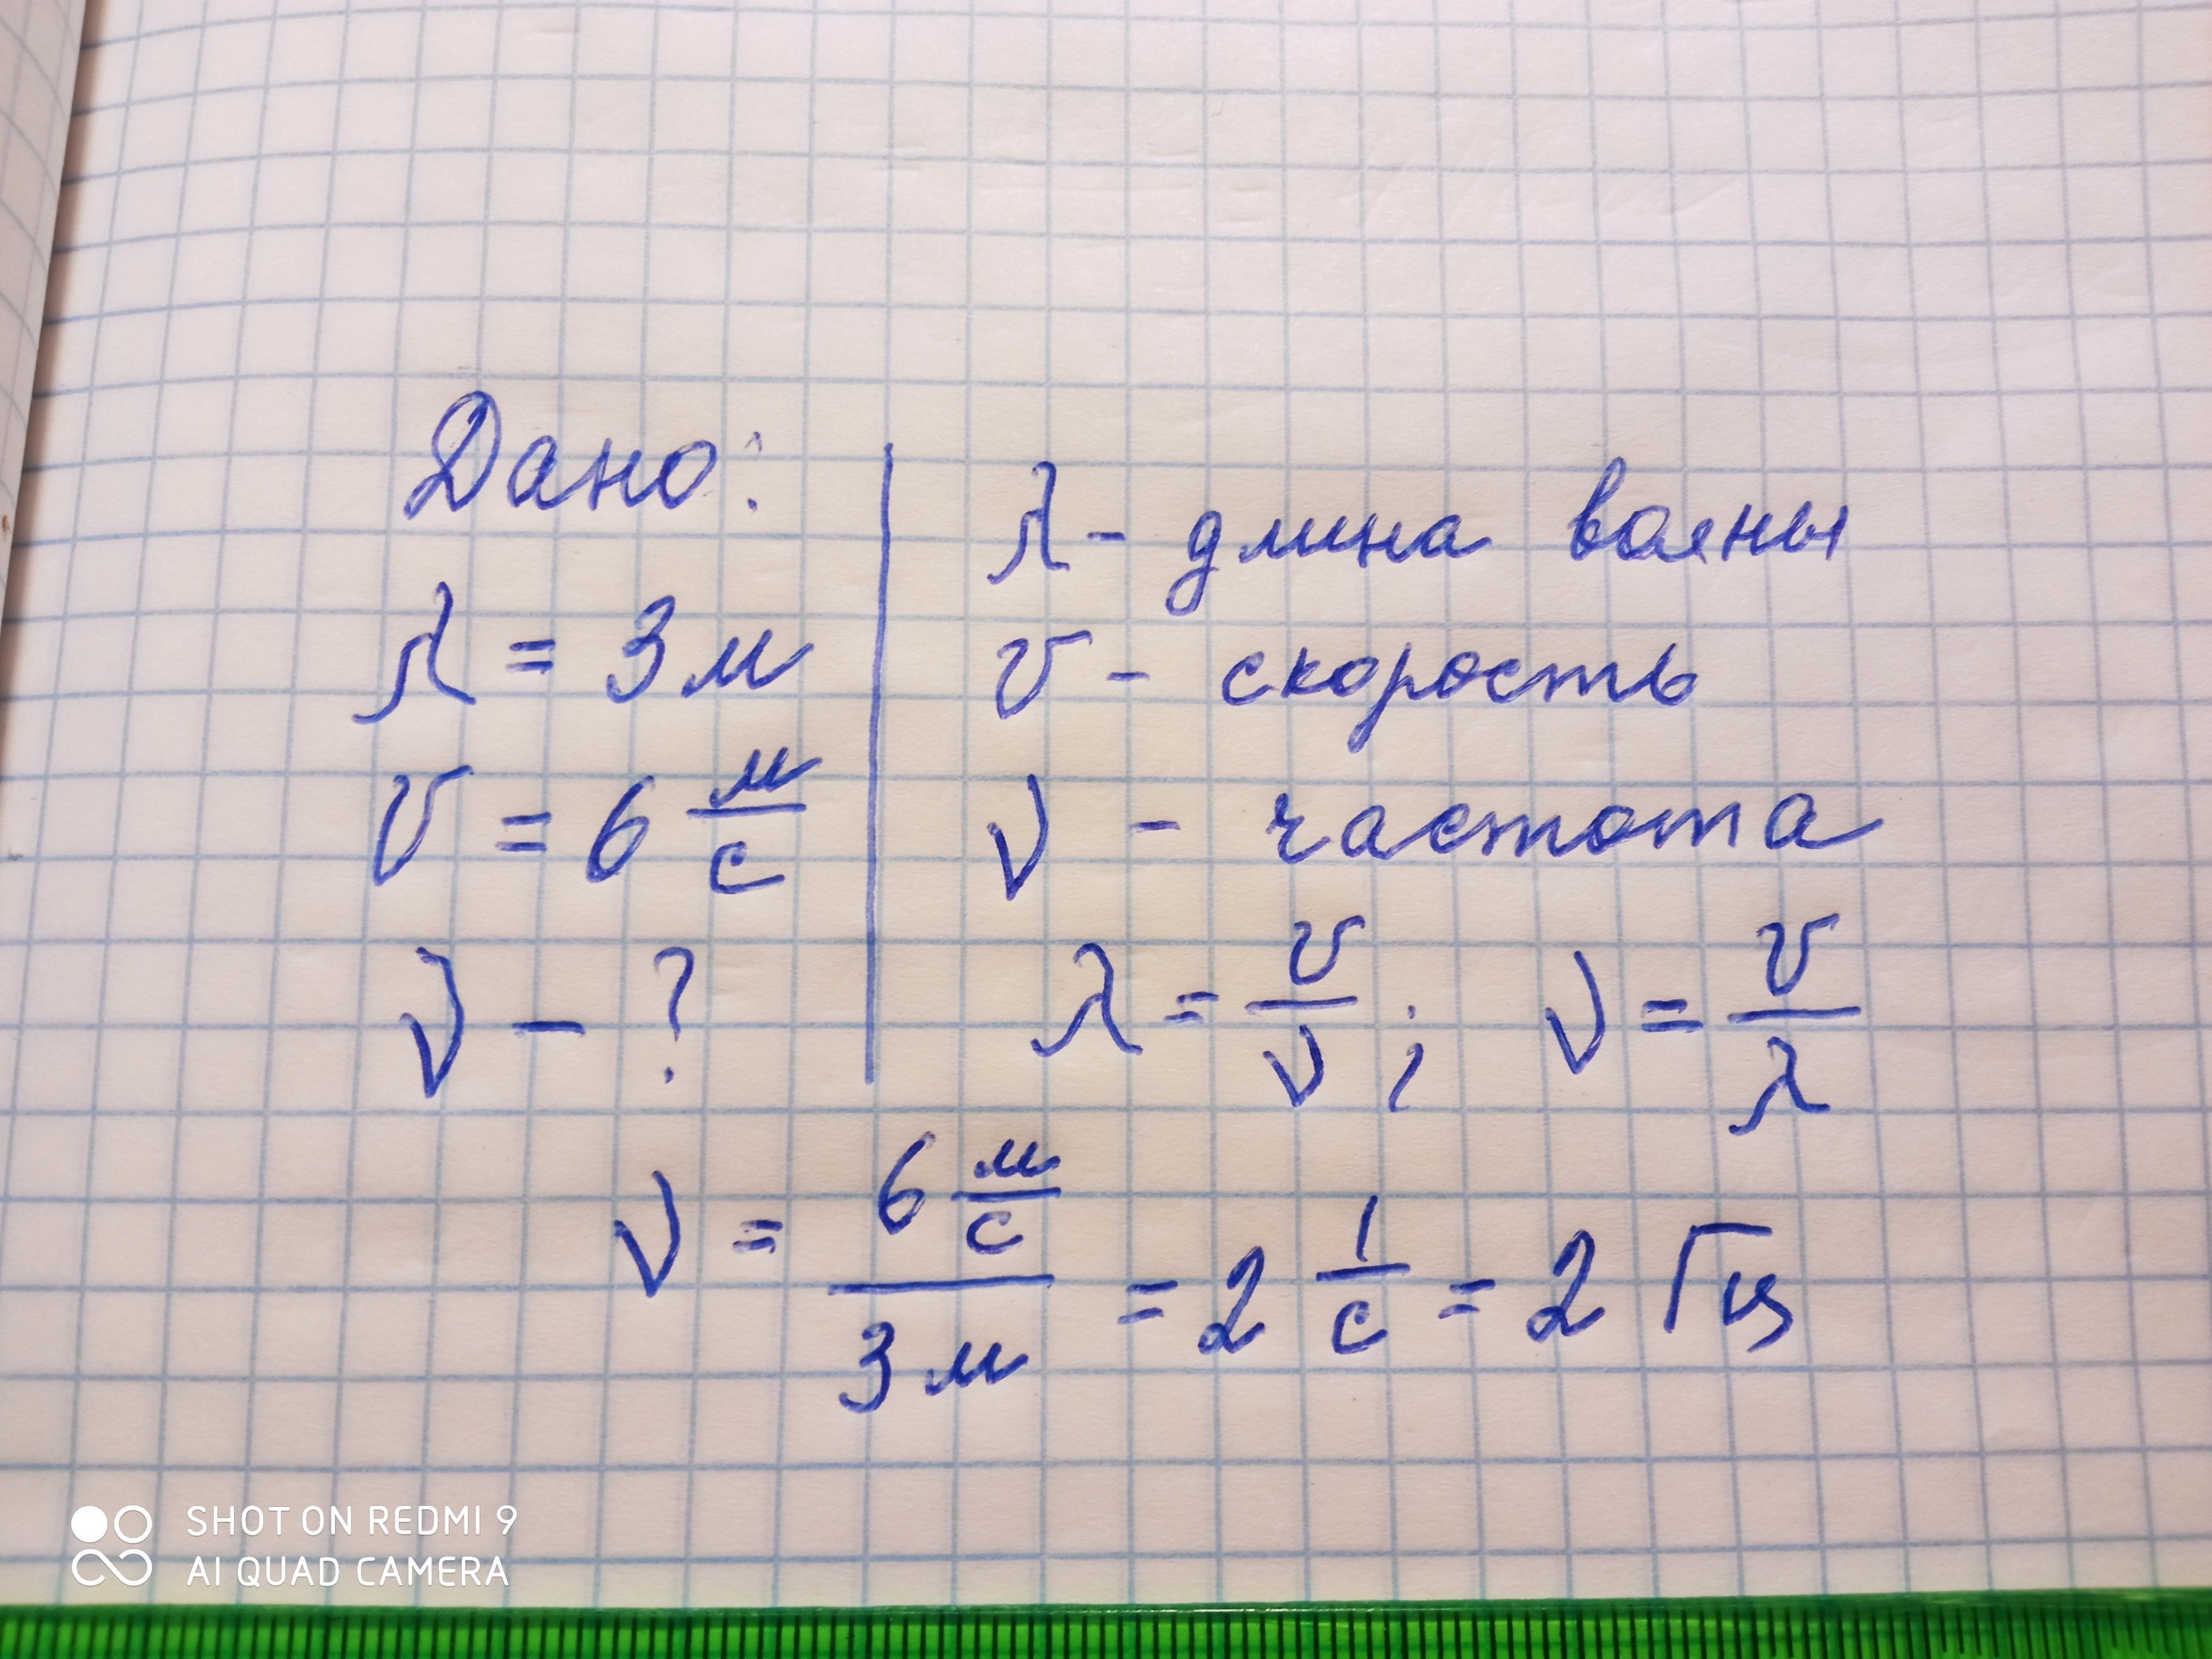 Дано:
λ = 3 м
υ = 6 м/с
ν - ?
λ - длина волны
υ - скорость
ν - частота
λ = υ/ν ; ν = υ/λ
ν = (6 м/с)/(3 м) = 2 1/с = 2 Гц
SHOT ON REDMI 9
AI QUAD CAMERA